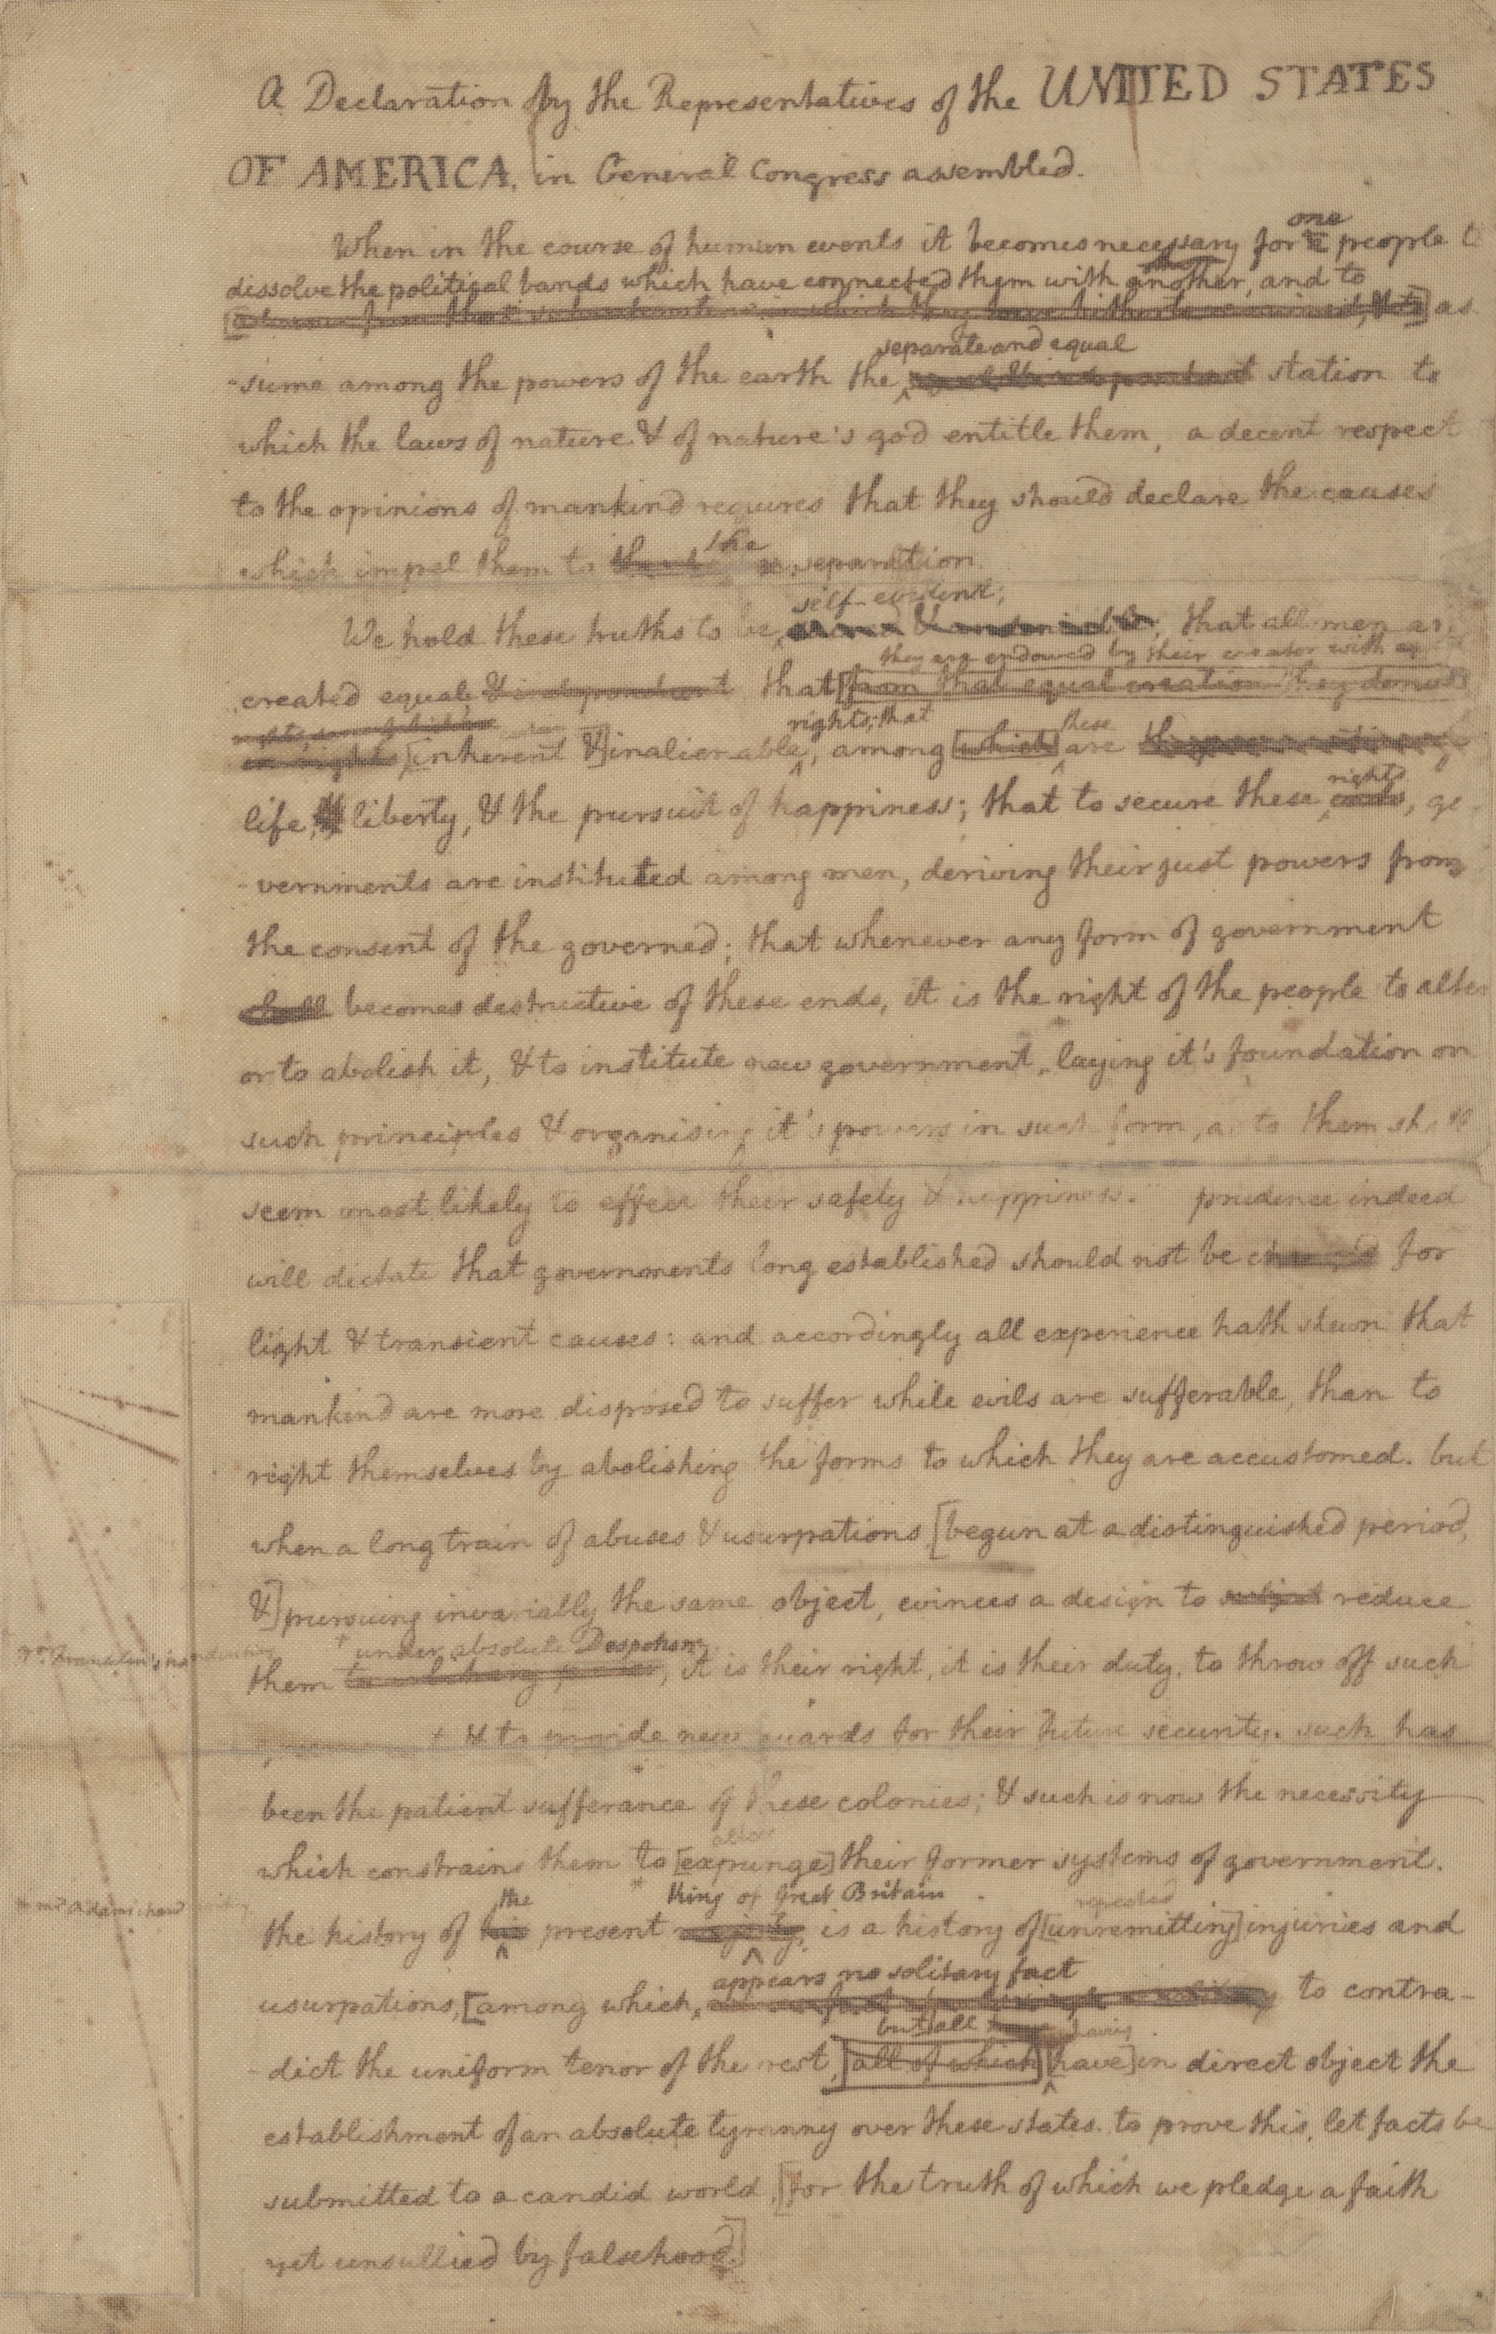 A Declaration by the Representatives of the UNITED STATES
OF AMERICA, in General Congress assembled.
When in the course of human events it becomes necessary for a one people t
dissolve the political bands which have connected them with another, and to
as
-sume among the powers of the earth the separate and equal station to
which the laws of nature & of nature's god entitle them, a decent respect
to the opinions of mankind requires that they should declare the causes
which impel them to the separation.
self-evident;
We hold these truths to be that all men ar
they are endowed by their creator with
created equal & independent that [from that equal creation they derive
rights; that these
[inherent &] inalienable, among [which] are
life, liberty, & the pursuit of happiness; that to secure these rights, go
-vernments are instituted among men, deriving their just powers from
the consent of the governed; that whenever any form of government
shall becomes destructive of these ends, it is the right of the people to alter
or to abolish it, & to institute new government, laying it's foundation on
such principles & organising it's powers in such form, as to them shall
seem most likely to effect their safety & happiness. prudence indeed
will dictate that governments long established should not be changed for
light & transient causes: and accordingly all experience hath shewn that
mankind are more disposed to suffer while evils are sufferable, than to
right themselves by abolishing the forms to which they are accustomed. but
when a long train of abuses & usurpations, [begun at a distinguished period,
&] pursuing invariably the same object, evinces a design to subject reduce
under absolute Despotism
them it is their right, it is their duty, to throw off such
& to provide new guards for their future security. such has
been the patient sufferance of these colonies; & such is now the necessity
alter
which constrains them to [expunge] their former systems of government.
the * King of Great Britain repeated
the history of his present majesty, is a history of [unremitting] injuries and
appears no solitary fact
usurpations, [among which, to contra-
but all having
-dict the uniform tenor of the rest, [all of which] [have] in direct object the
establishment of an absolute tyranny over these states. to prove this, let facts be
submitted to a candid world, [for the truth of which we pledge a faith
yet unsullied by falsehood.]